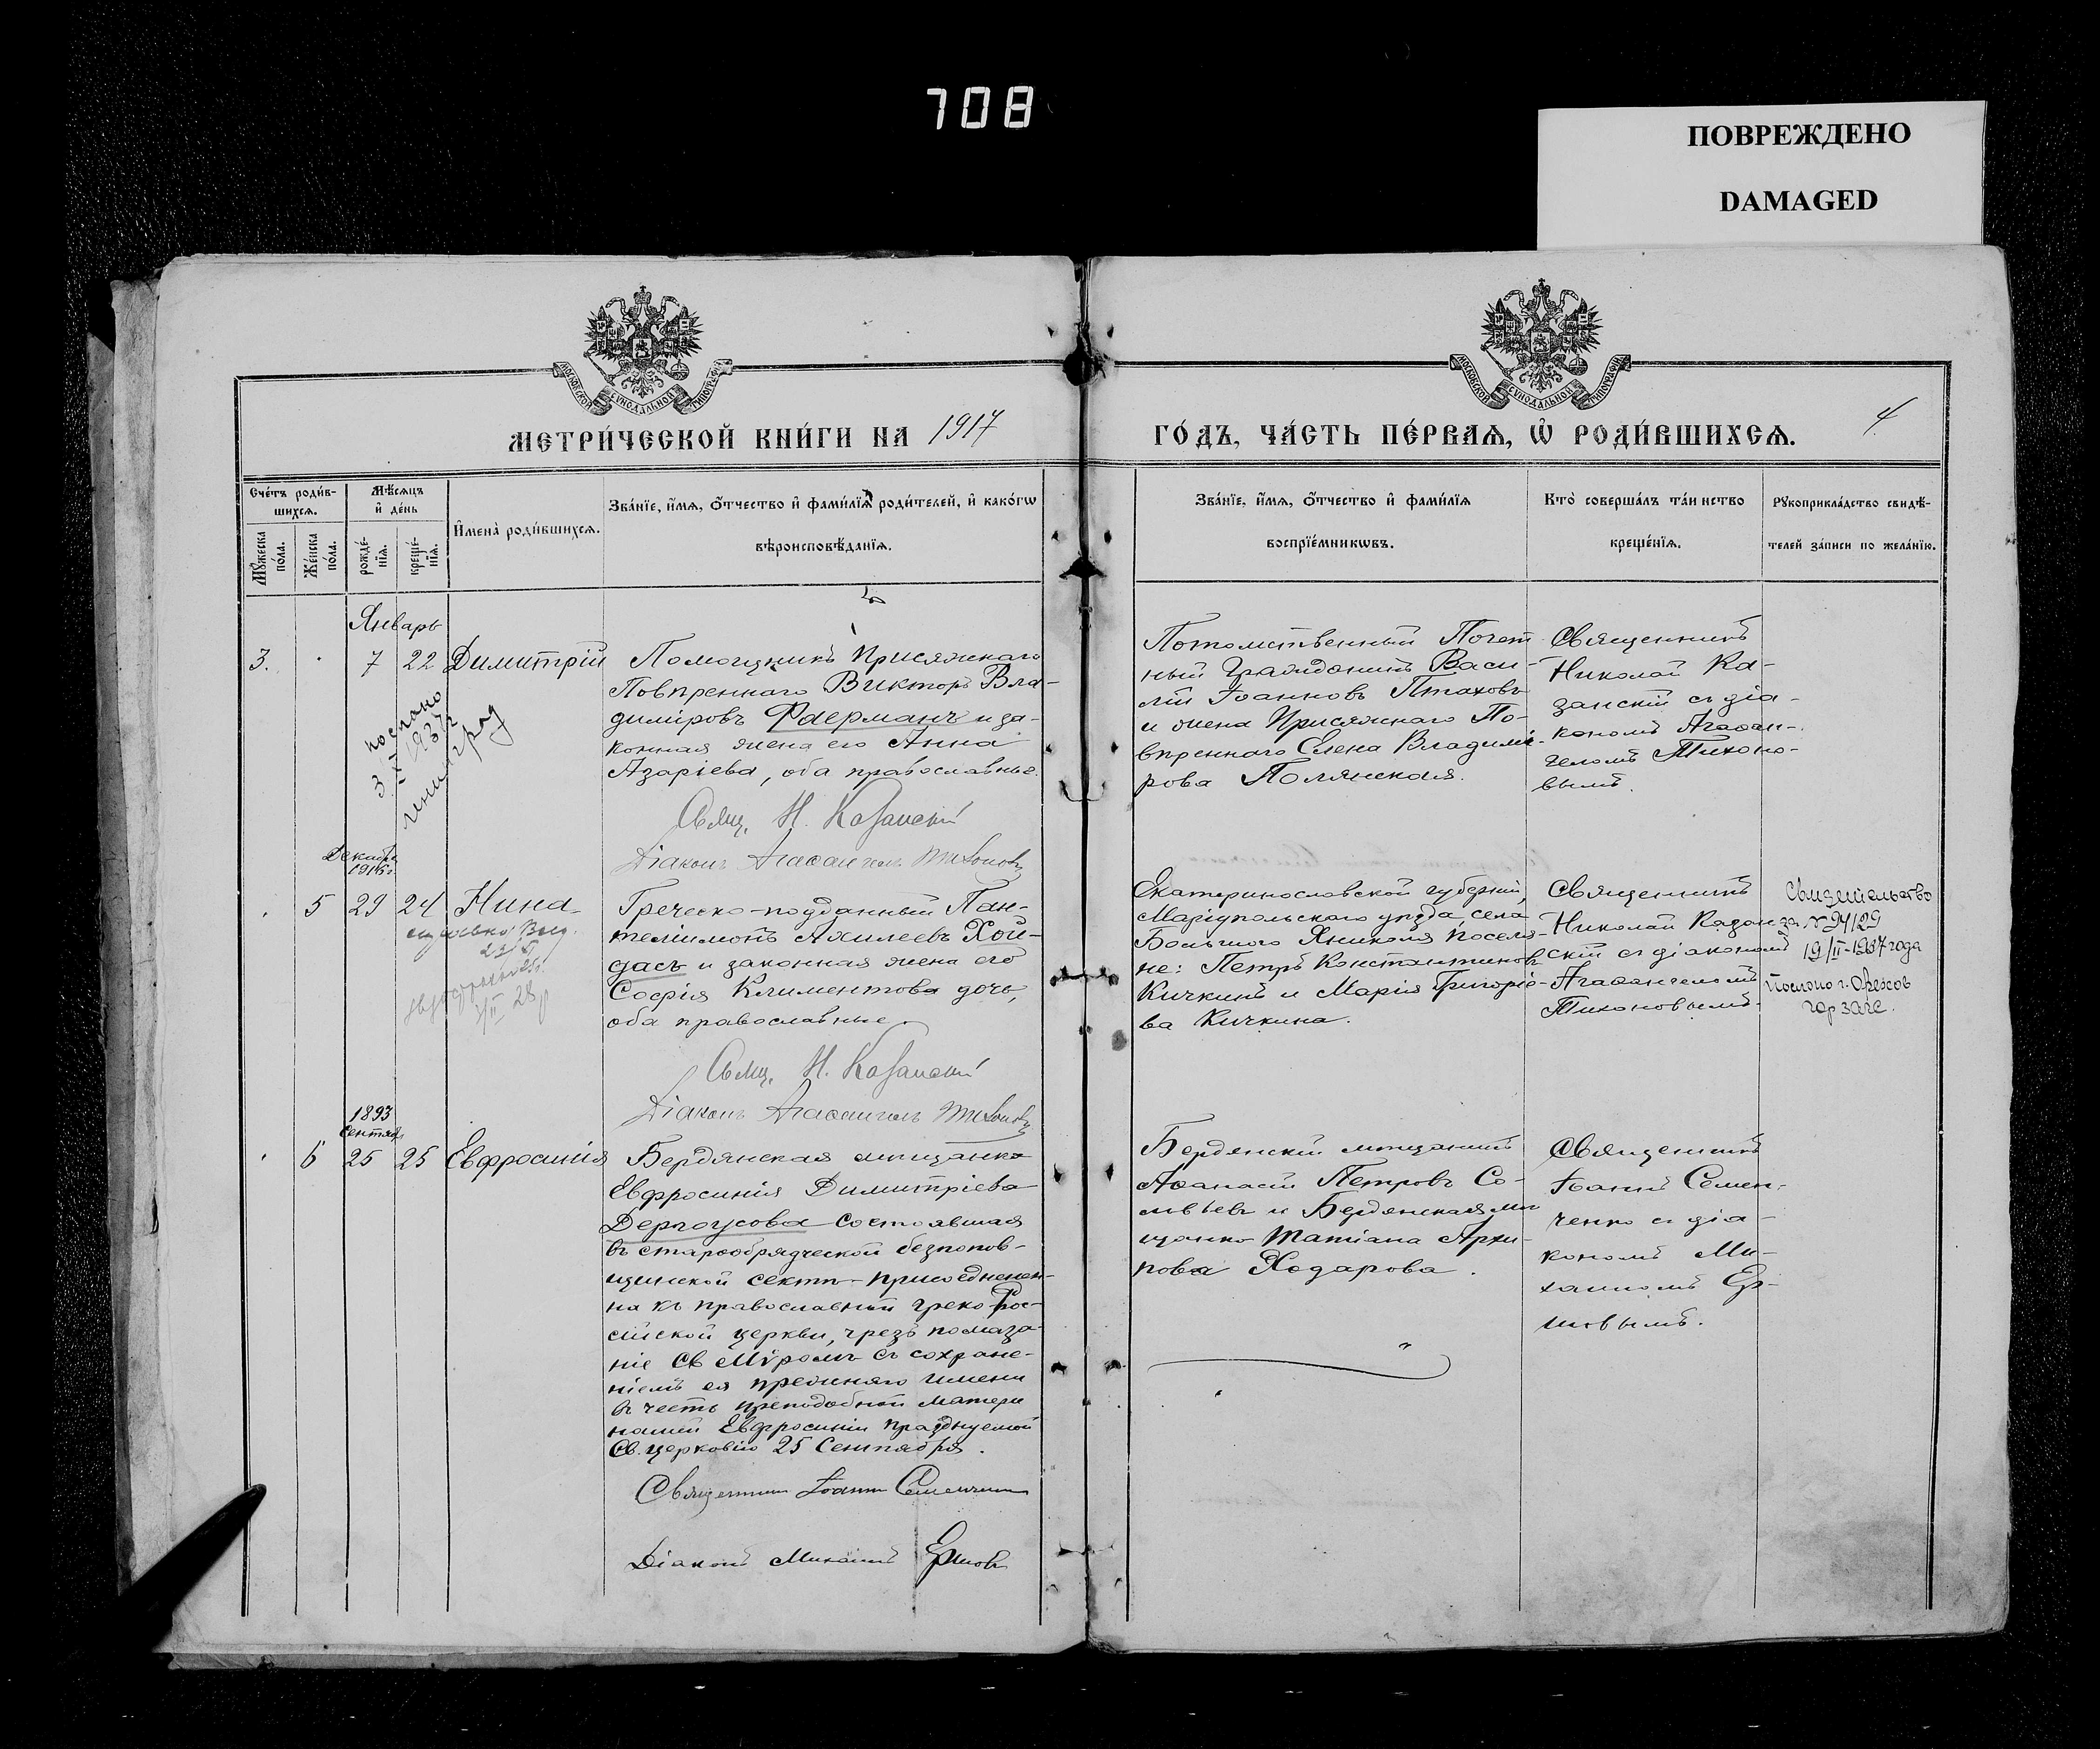 708
ПОВРЕЖДЕНО
DAMAGED
МОСКОВСКОЙ СѴНОДАЛЬНОЙ ТИПОГРАФІИ
МОСКОВСКОЙ СѴНОДАЛЬНОЙ ТИПОГРАФІИ
МЕТРИ́ЧЕСКОЙ КНИ́ГИ НА 1917
ГО́ДЪ, ЧА́СТЬ ПЕ́РВАѦ, Ѡ҆ РОДИ́ВШИХСѦ.
4
Сче́тъ роди́в-
шихсѧ.
Мꙋ́жеска по́ла.
Же́нска по́ла.
Мѣ́сѧцъ и҆ де́нь
рожде́-
нїѧ.
креще́-
нїѧ.
И҆мена̀ роди́вшихсѧ.
Зва́нїе, и҆́мѧ, ѻ҆́тчество и҆ фами́лїѧ роди́телей, и҆ како́гѡ
вѣроисповѣ́данїѧ.
Зва́нїе, и҆́мѧ, ѻ҆́тчество и҆ фами́лїѧ
воспрїе́мникѡвъ.
Кто̀ соверша́лъ та́инство
креще́нїѧ.
Рꙋкоприкла́дство свидѣ́-
телей за́писи по жела́нїю.
Январь
3. 7 22 Димитрій
Помощникъ Присяжнаго
Повѣреннаго Викторъ Вла-
диміровъ Фаерманъ и за-
конная жена его Анна
Азаріева, оба православные.
Свящ. Н. Казанскій
Діаконъ Агаѳангелъ Тихоновъ
послано
3/V 1937 г
ленинград
Потомственный Почет
ный Гражданинъ Васи-
лій Іоанновъ Птаховъ
и жена Присяжнаго По-
вѣреннаго Елена Владимі-
рова Полянская.
Священникъ
Николай Ка-
занскій съ діа-
кономъ Агаѳан-
геломъ Тихоно-
вымъ.
Декабрь
1916 г.
5 29 24 Нина
Греческо-подданный Пан-
телиимонъ Ахилеевъ Хой-
дасъ и законная жена его
Софія Климентова дочь,
оба православные.
Свящ. Н. Казанскій
Діаконъ Агаѳангелъ Тихоновъ
Екатеринославской губерніи,
Маріупольскаго уѣзда, села
Большого Яникоя поселя-
не: Петръ Константиновъ
Кичкинъ и Марія Григорiе-
ва Кичкина.
Священникъ
Николай Казан
скій съ діакономъ
Агаѳангеломъ
Тихоновымъ.
Свидетельство
за № 94/29
19/II-1937 года
послано г. Орехов
гор загс.
1893
Сентяб.
6 25 25 Евфросинія
Бердянская мѣщанка
Евфросинія Димитріева
Дергоусова состоявшая
въ старообрядческой безпопов-
щинской сектѣ - присоединен-
на къ православной греко-Рос-
сійской церкви, чрезъ помаза-
ніе Св Мѵромъ съ сохране-
ніемъ ея прежняго имени
въ честь преподобной матери
нашей Евфросиніи празднуемой
Св. церковію 25 Сентября.
Священникъ Іоаннъ Семенченко
Діаконъ Михаилъ Ершовъ
Бердянскій мѣщанинъ
Аѳанасій Петровъ Со-
ловьевъ и Бердянская мѣ
щанка Татіана Архи-
пова Ходарова.
Священникъ
Іоаннъ Семен-
ченко съ діа-
кономъ Ми-
хаиломъ Ер-
шовымъ.